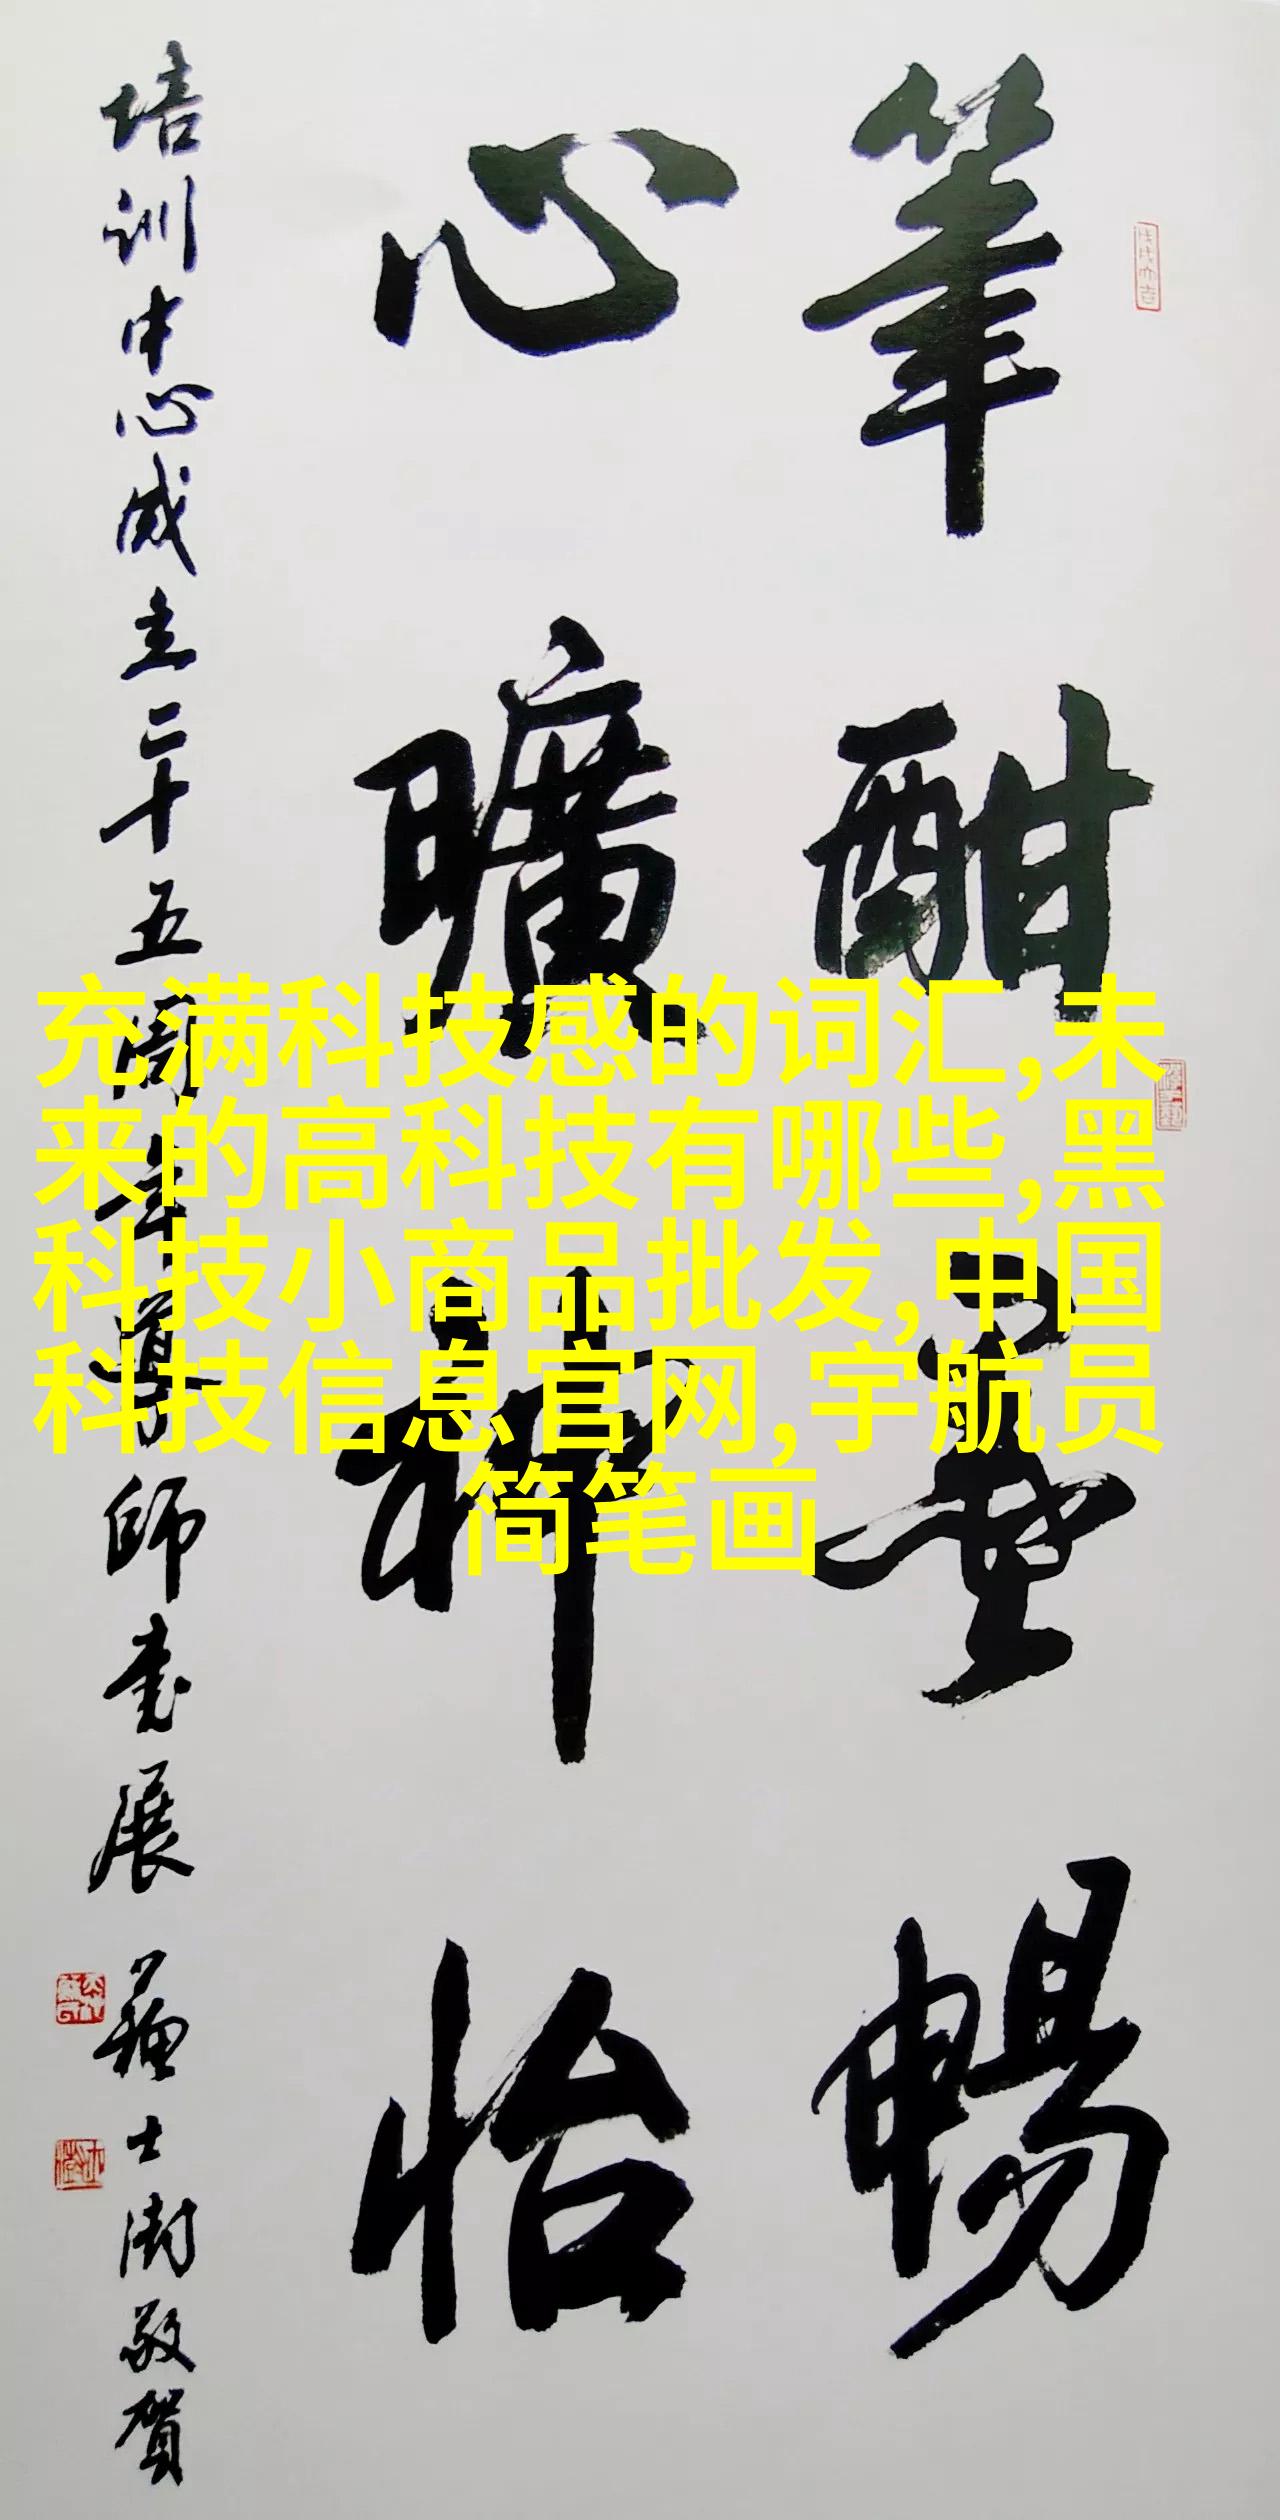 筆酣墨暢
心曠神怡
培訓中心成立二十五周年導師書展
敬賀
充满科技感的词汇,未
来的高科技有哪些,黑
科技小商品批发,中国
科技信息官网,宇航员
简笔画